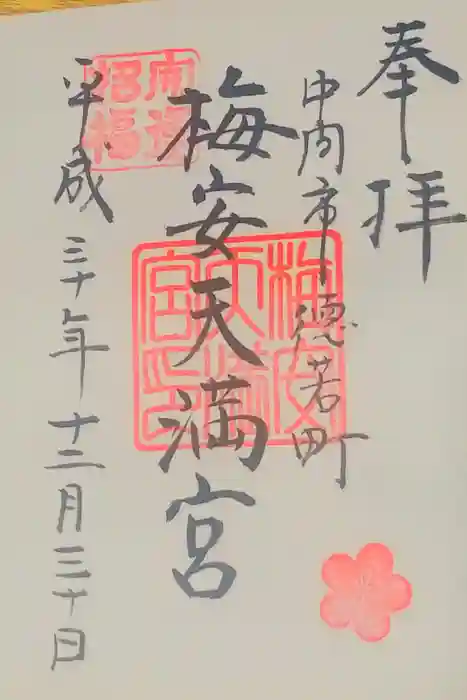 奉拝
中間市徳若町
梅安天満宮
平成三十年十二月三十日
招福
梅安
天満
宮之印